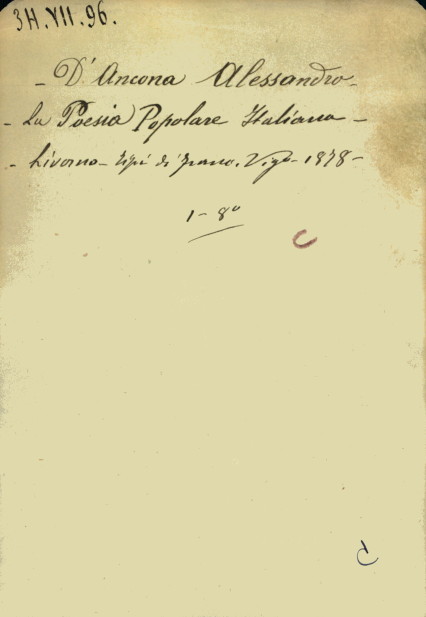 3H.VII.96.
- D'Ancona Alessandro -
- La Poesia Popolare Italiana -
- Livorno - tipi di Franc. Vigo - 1878 -
1 - 8º
C